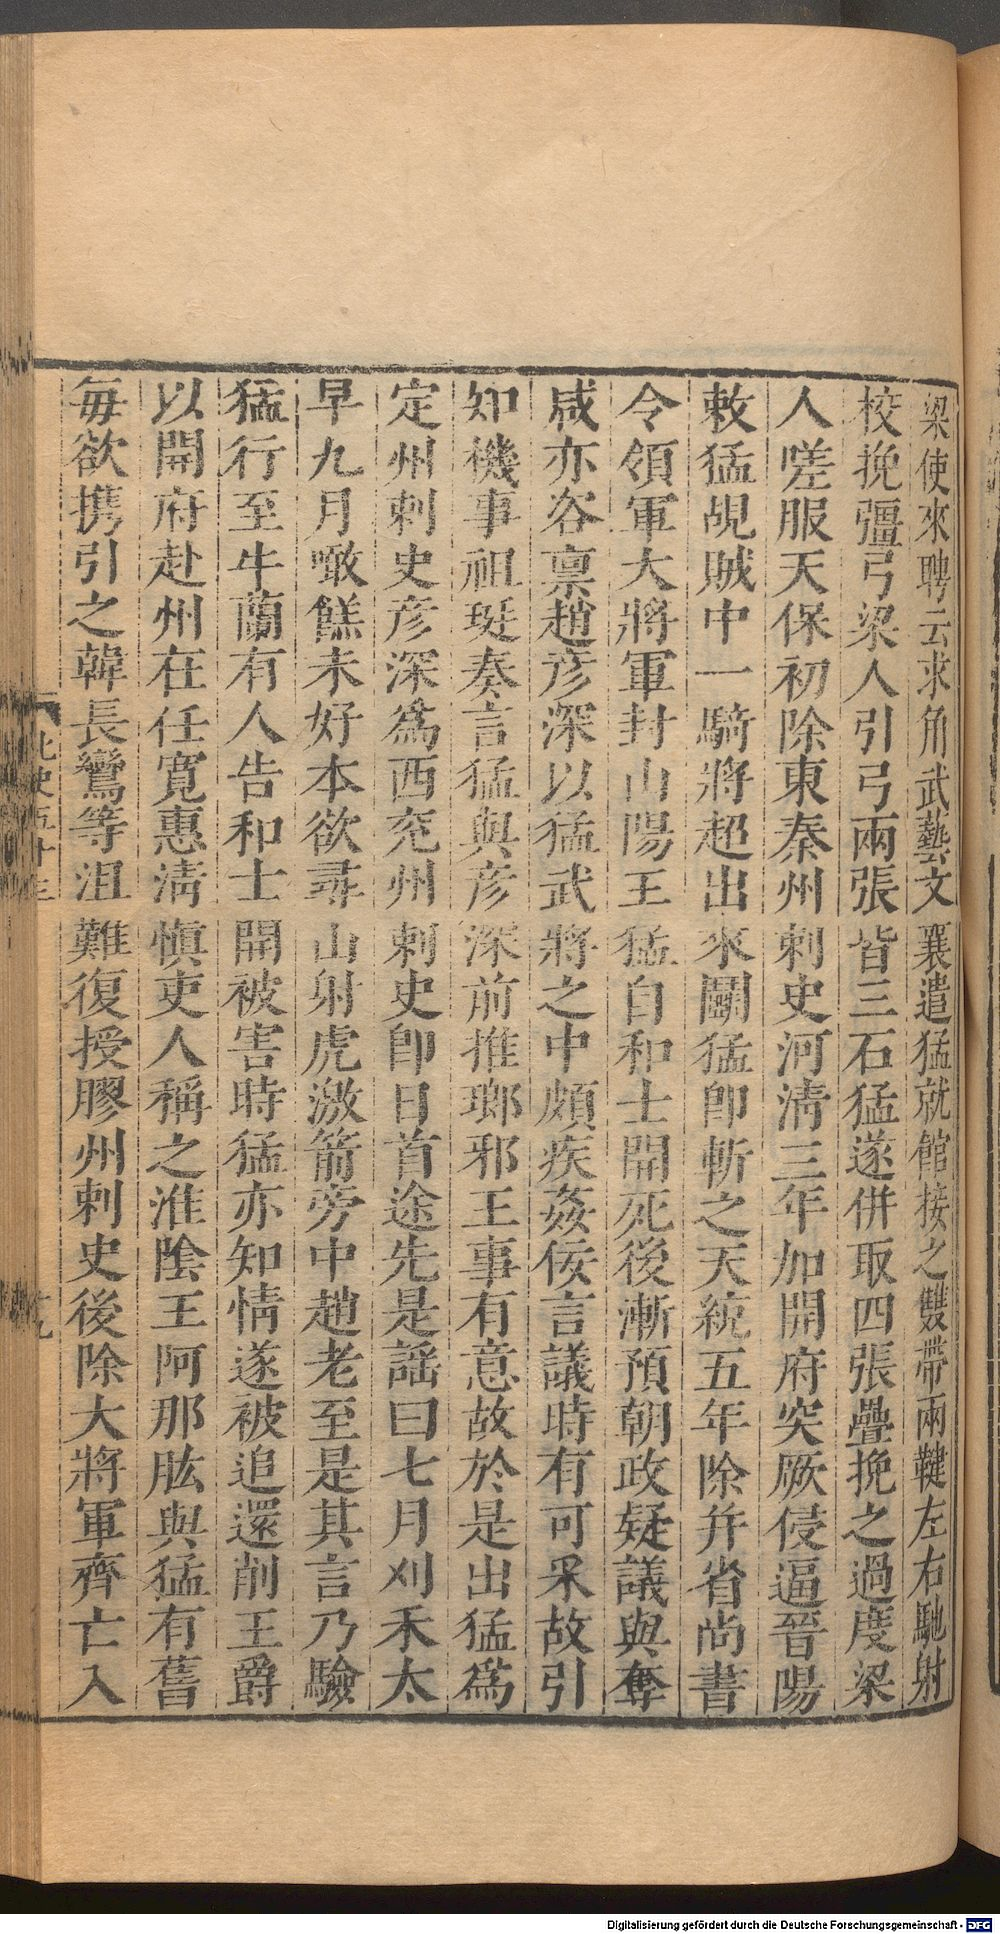 梁使來聘云求角武藝文襄遣猛就館接之雙帶兩鞬左右馳射
校挽彊弓梁人引弓兩張皆三石猛遂併取四張疊挽之過度梁
人嗟服天保初除東秦州刺史河清三年加開府突厥侵逼晉陽
敕猛覘賊中一騎將超出來鬭猛即斬之天統五年除并省尚書
令領軍大將軍封山陽王猛自和士開死後漸預朝政疑議與奪
咸亦咨禀趙彦深以猛武將之中頗疾姦佞言議時有可采故引
知機事祖珽奏言猛與彦深前推瑯邪王事有意故於是出猛爲
定州刺史彦深爲西兖州刺史即日首途先是謡曰七月刈禾太
早九月噉餻未好本欲尋山射虎激箭旁中趙老至是其言乃驗
猛行至牛蘭有人告和士開被害時猛亦知情遂被追還削王爵
以開府赴州在任寛惠清慎吏人稱之淮陰王阿那肱與猛有舊
每欲携引之韓長鸞等沮難復授膠州刺史後除大將軍齊亡入
北史五十三
Digitalisierung gefördert durch die Deutsche Forschungsgemeinschaft - DFG